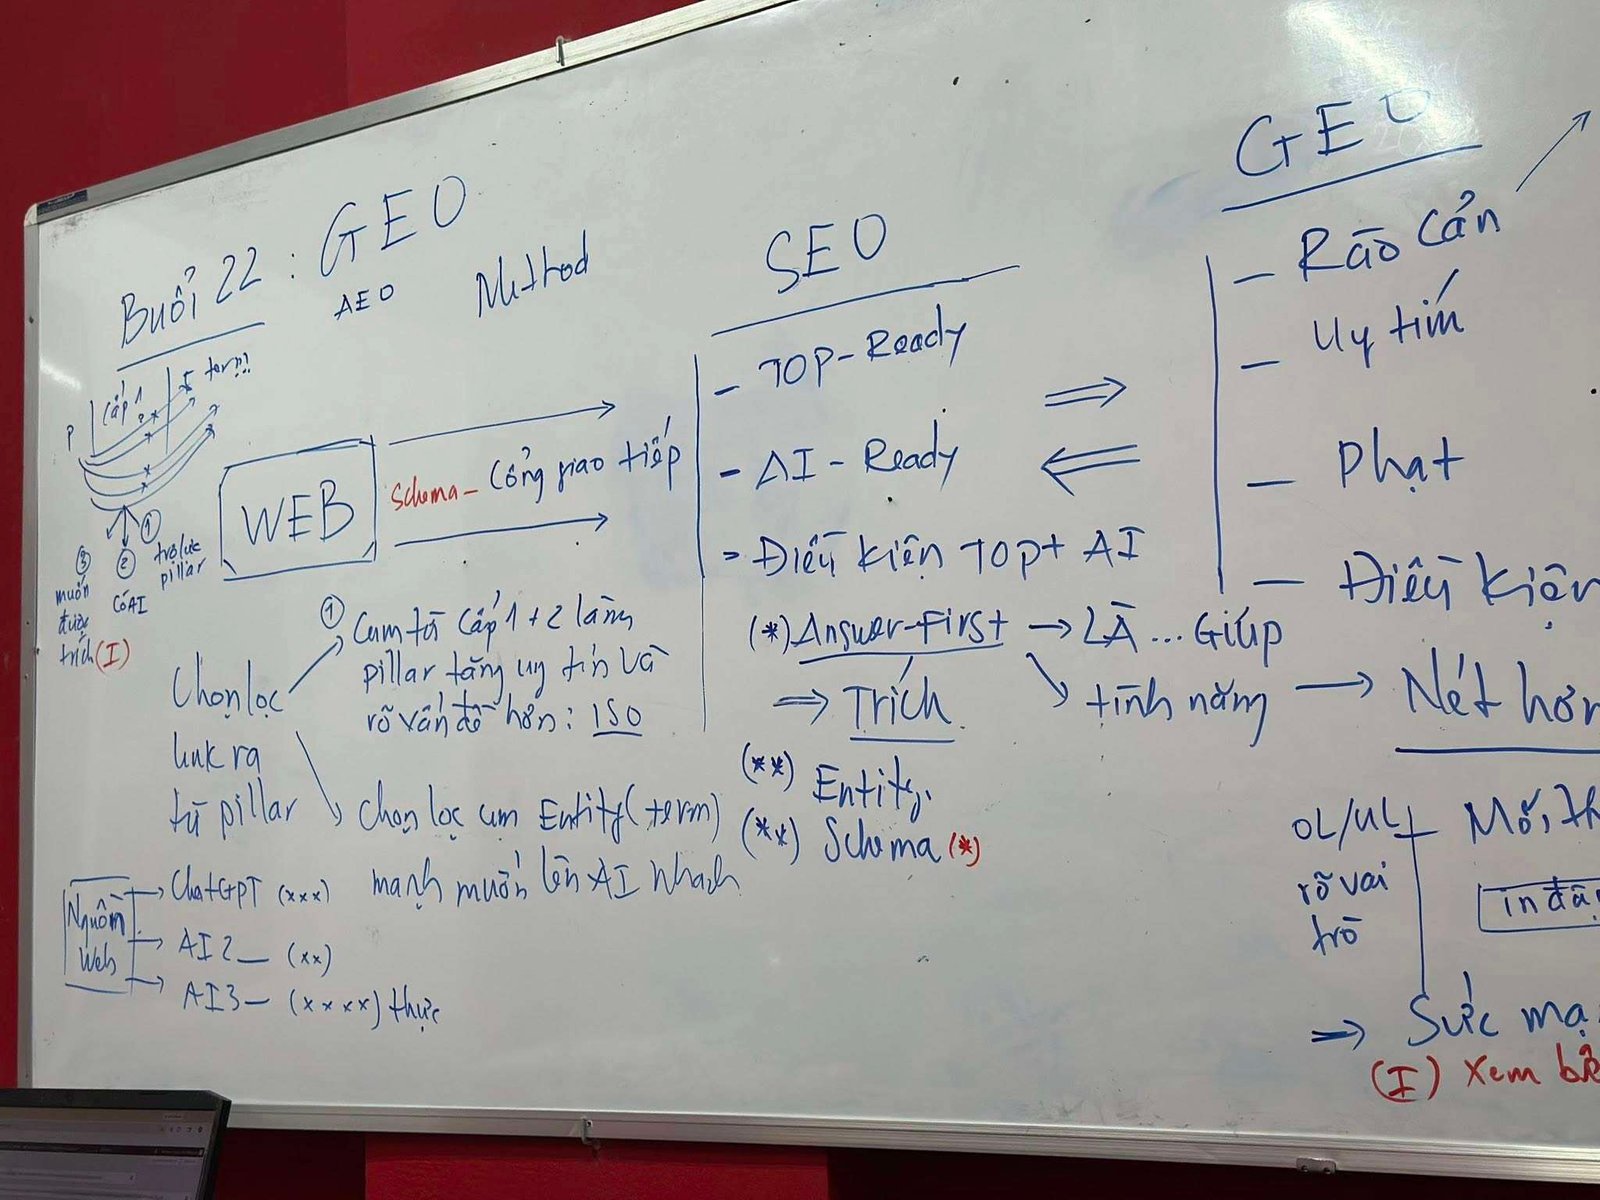 Buổi 22 : GEO
AEO
Method
P
Cấp 1
2
5 term
③
muốn
được
trích (I)
②
Có AI
①
trỏ lực
pillar
WEB
Schema - Cổng giao tiếp
Chọn lọc
link ra
từ pillar
① Cụm từ Cấp 1 + 2 làm
pillar tăng uy tín và
rõ vấn đề hơn : ISO
chọn lọc cụm Entity (term)
mạnh muốn lên AI nhanh
Nguồn
Web
ChatGPT (xxx)
AI 2 - (xx)
AI 3 - (xxxx) thực
SEO
- TOP - Ready
- AI - Ready
= Điều kiện TOP + AI
(*) Answer-First → LÀ ... Giúp
↘ tính năng → Nét hơn
⇒ Trích
(**) Entity.
(**) Schema (*)
⇒
⇐
GEO
- Rào cản
- Uy tín
- Phạt
- Điều kiện
OL/UL
rõ vai
trò
Mối,
in
⇒ Sức
(I) Xem